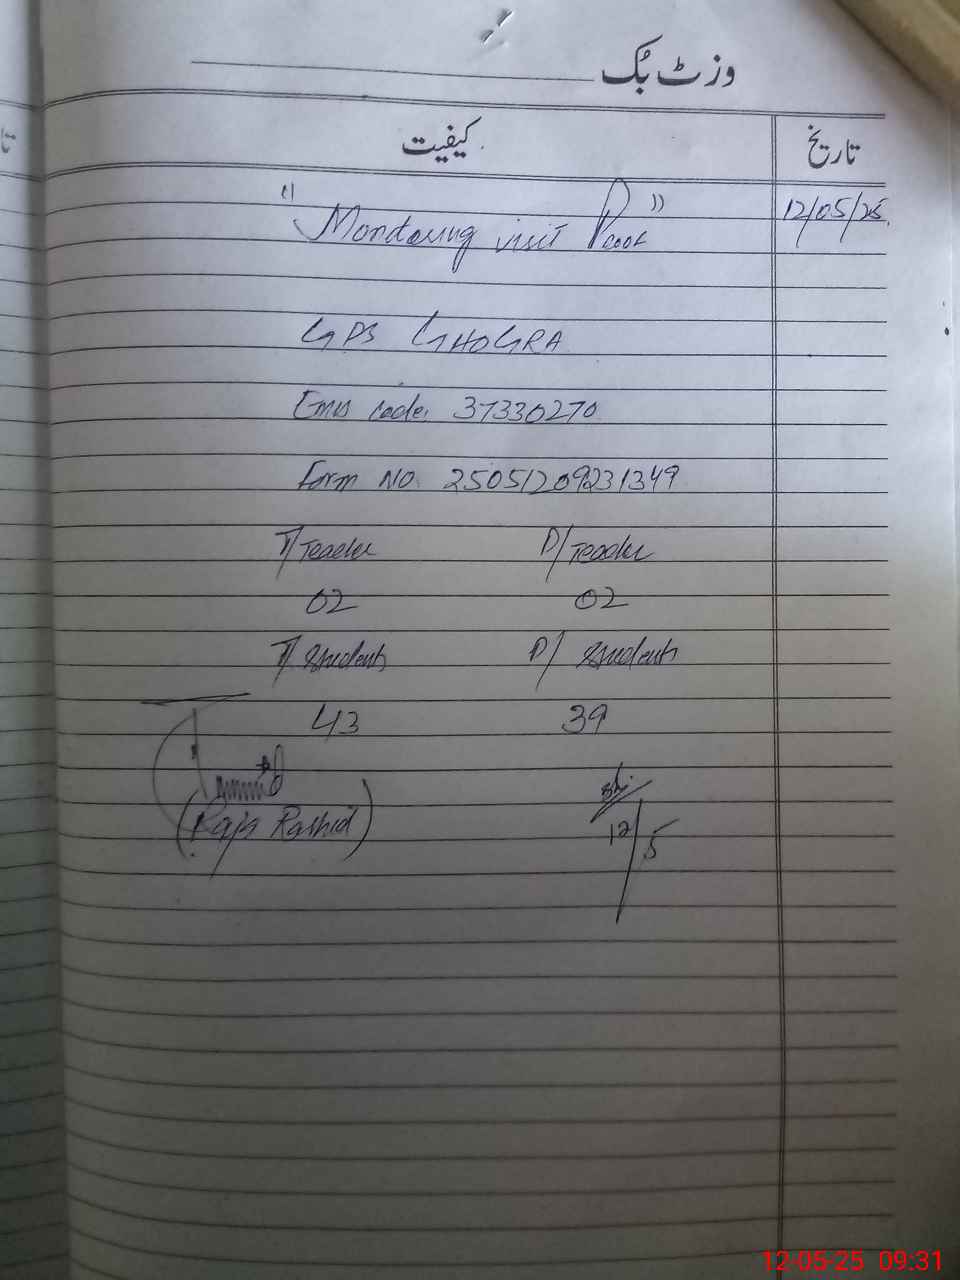 وزٹ بُک
کیفیت
تاریخ
12/05/25
" Monitoring visit Proof "
GPS GHOGRA
Emis code: 37330270
Form NO. 25051209231349
T/Teacher P/Teacher
02 02
T/Students P/Students
43 39
(Raja Rashid)
12/5
12-05-25 09:31